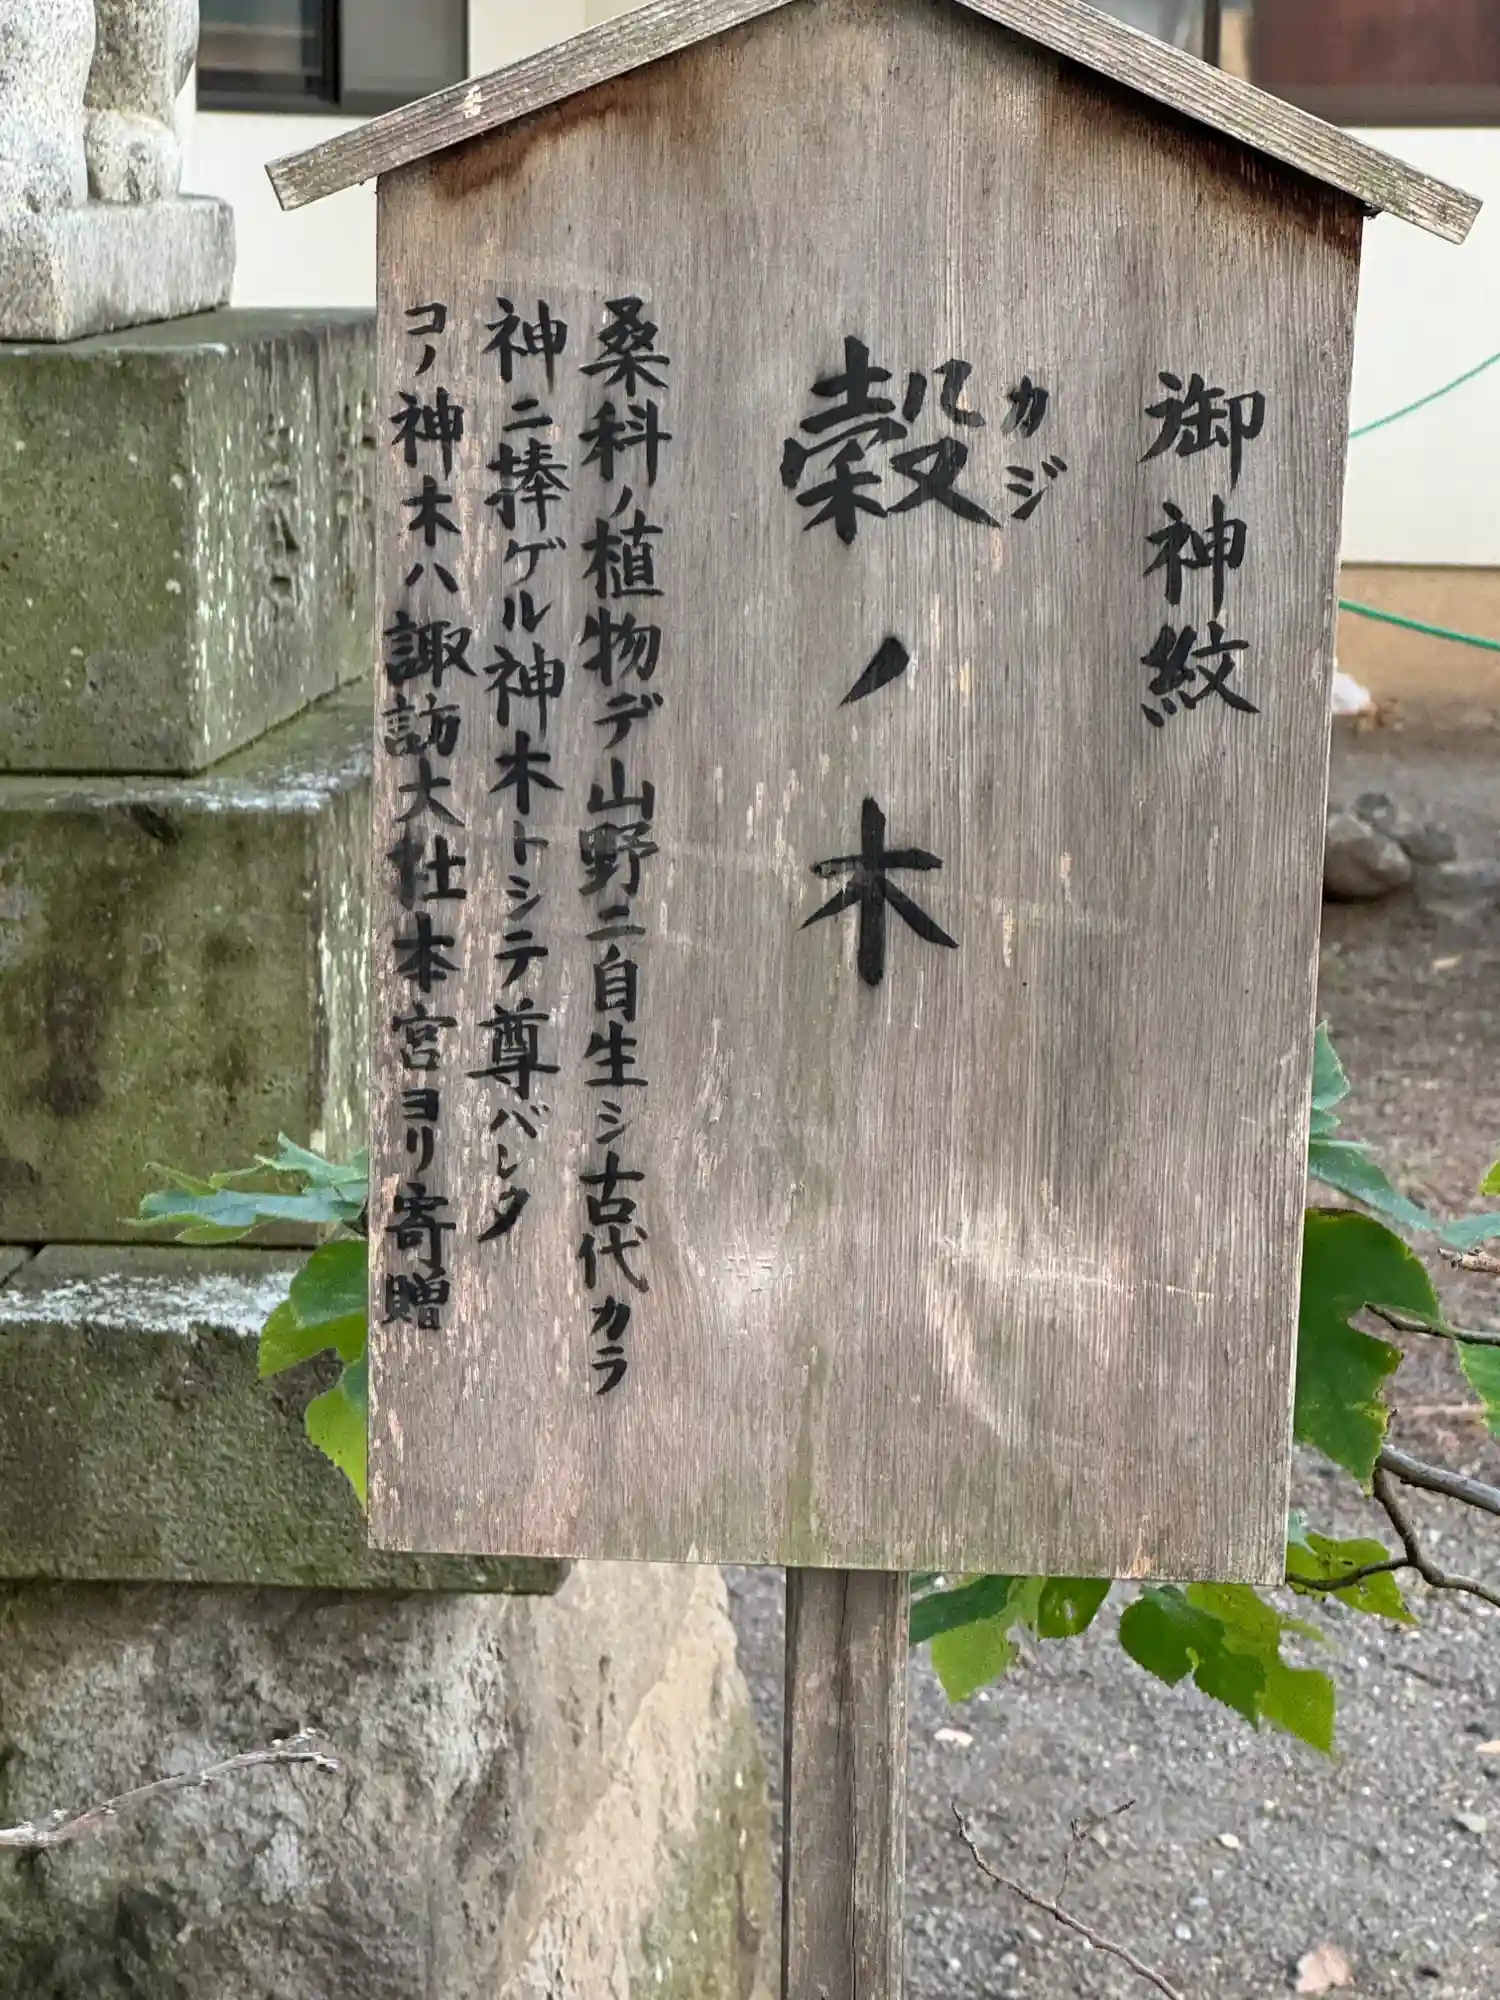 御神紋
カジ
穀ノ木
桑科ノ植物デ山野ニ自生シ古代カラ
神ニ捧ゲル神木トシテ尊バレタ
コノ神木ハ諏訪大社本宮ヨリ寄贈